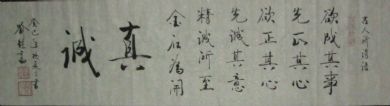 古人修道语
欲成其事
先正其心
欲正其心
先诚其意
精诚所至
金石为开
真诚